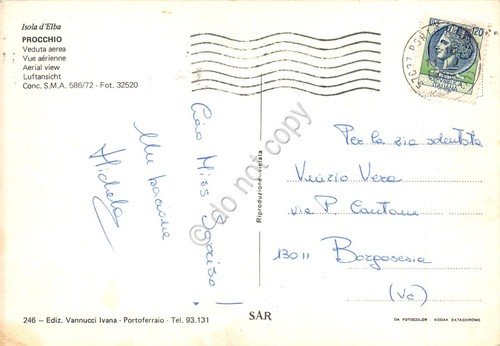 Isola d'Elba
PROCCHIO
Veduta aerea
Vue aérienne
Aerial view
Luftansicht
Conc. S.M.A. 586/72 - Fot. 32520
Ciao Miss Sorriso!
Un bacione
Michela
Riproduzione vietata
Per la zia sdentata
Vinizio Vera
via P. Cantone
13011 Borgosesia
(Vc)
246 — Ediz. Vannucci Ivana - Portoferraio - Tel. 93.131
SAR
DA FOTOCOLOR KODAK EKTACHROME
do not copy